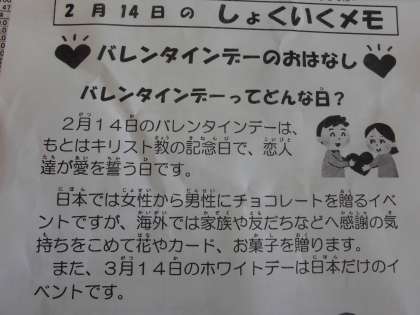 2月14日の しょくいくメモ
バレンタインデーのおはなし
バレンタインデーってどんな日?
2月14日のバレンタインデーは、
もとはキリスト教の記念日で、恋人
達が愛を誓う日です。
日本では女性から男性にチョコレートを贈るイ
ベントですが、海外では家族や友だちなどへ感謝の気
持ちをこめて花やカード、お菓子を贈ります。
また、3月14日のホワイトデーは日本だけのイ
ベントです。